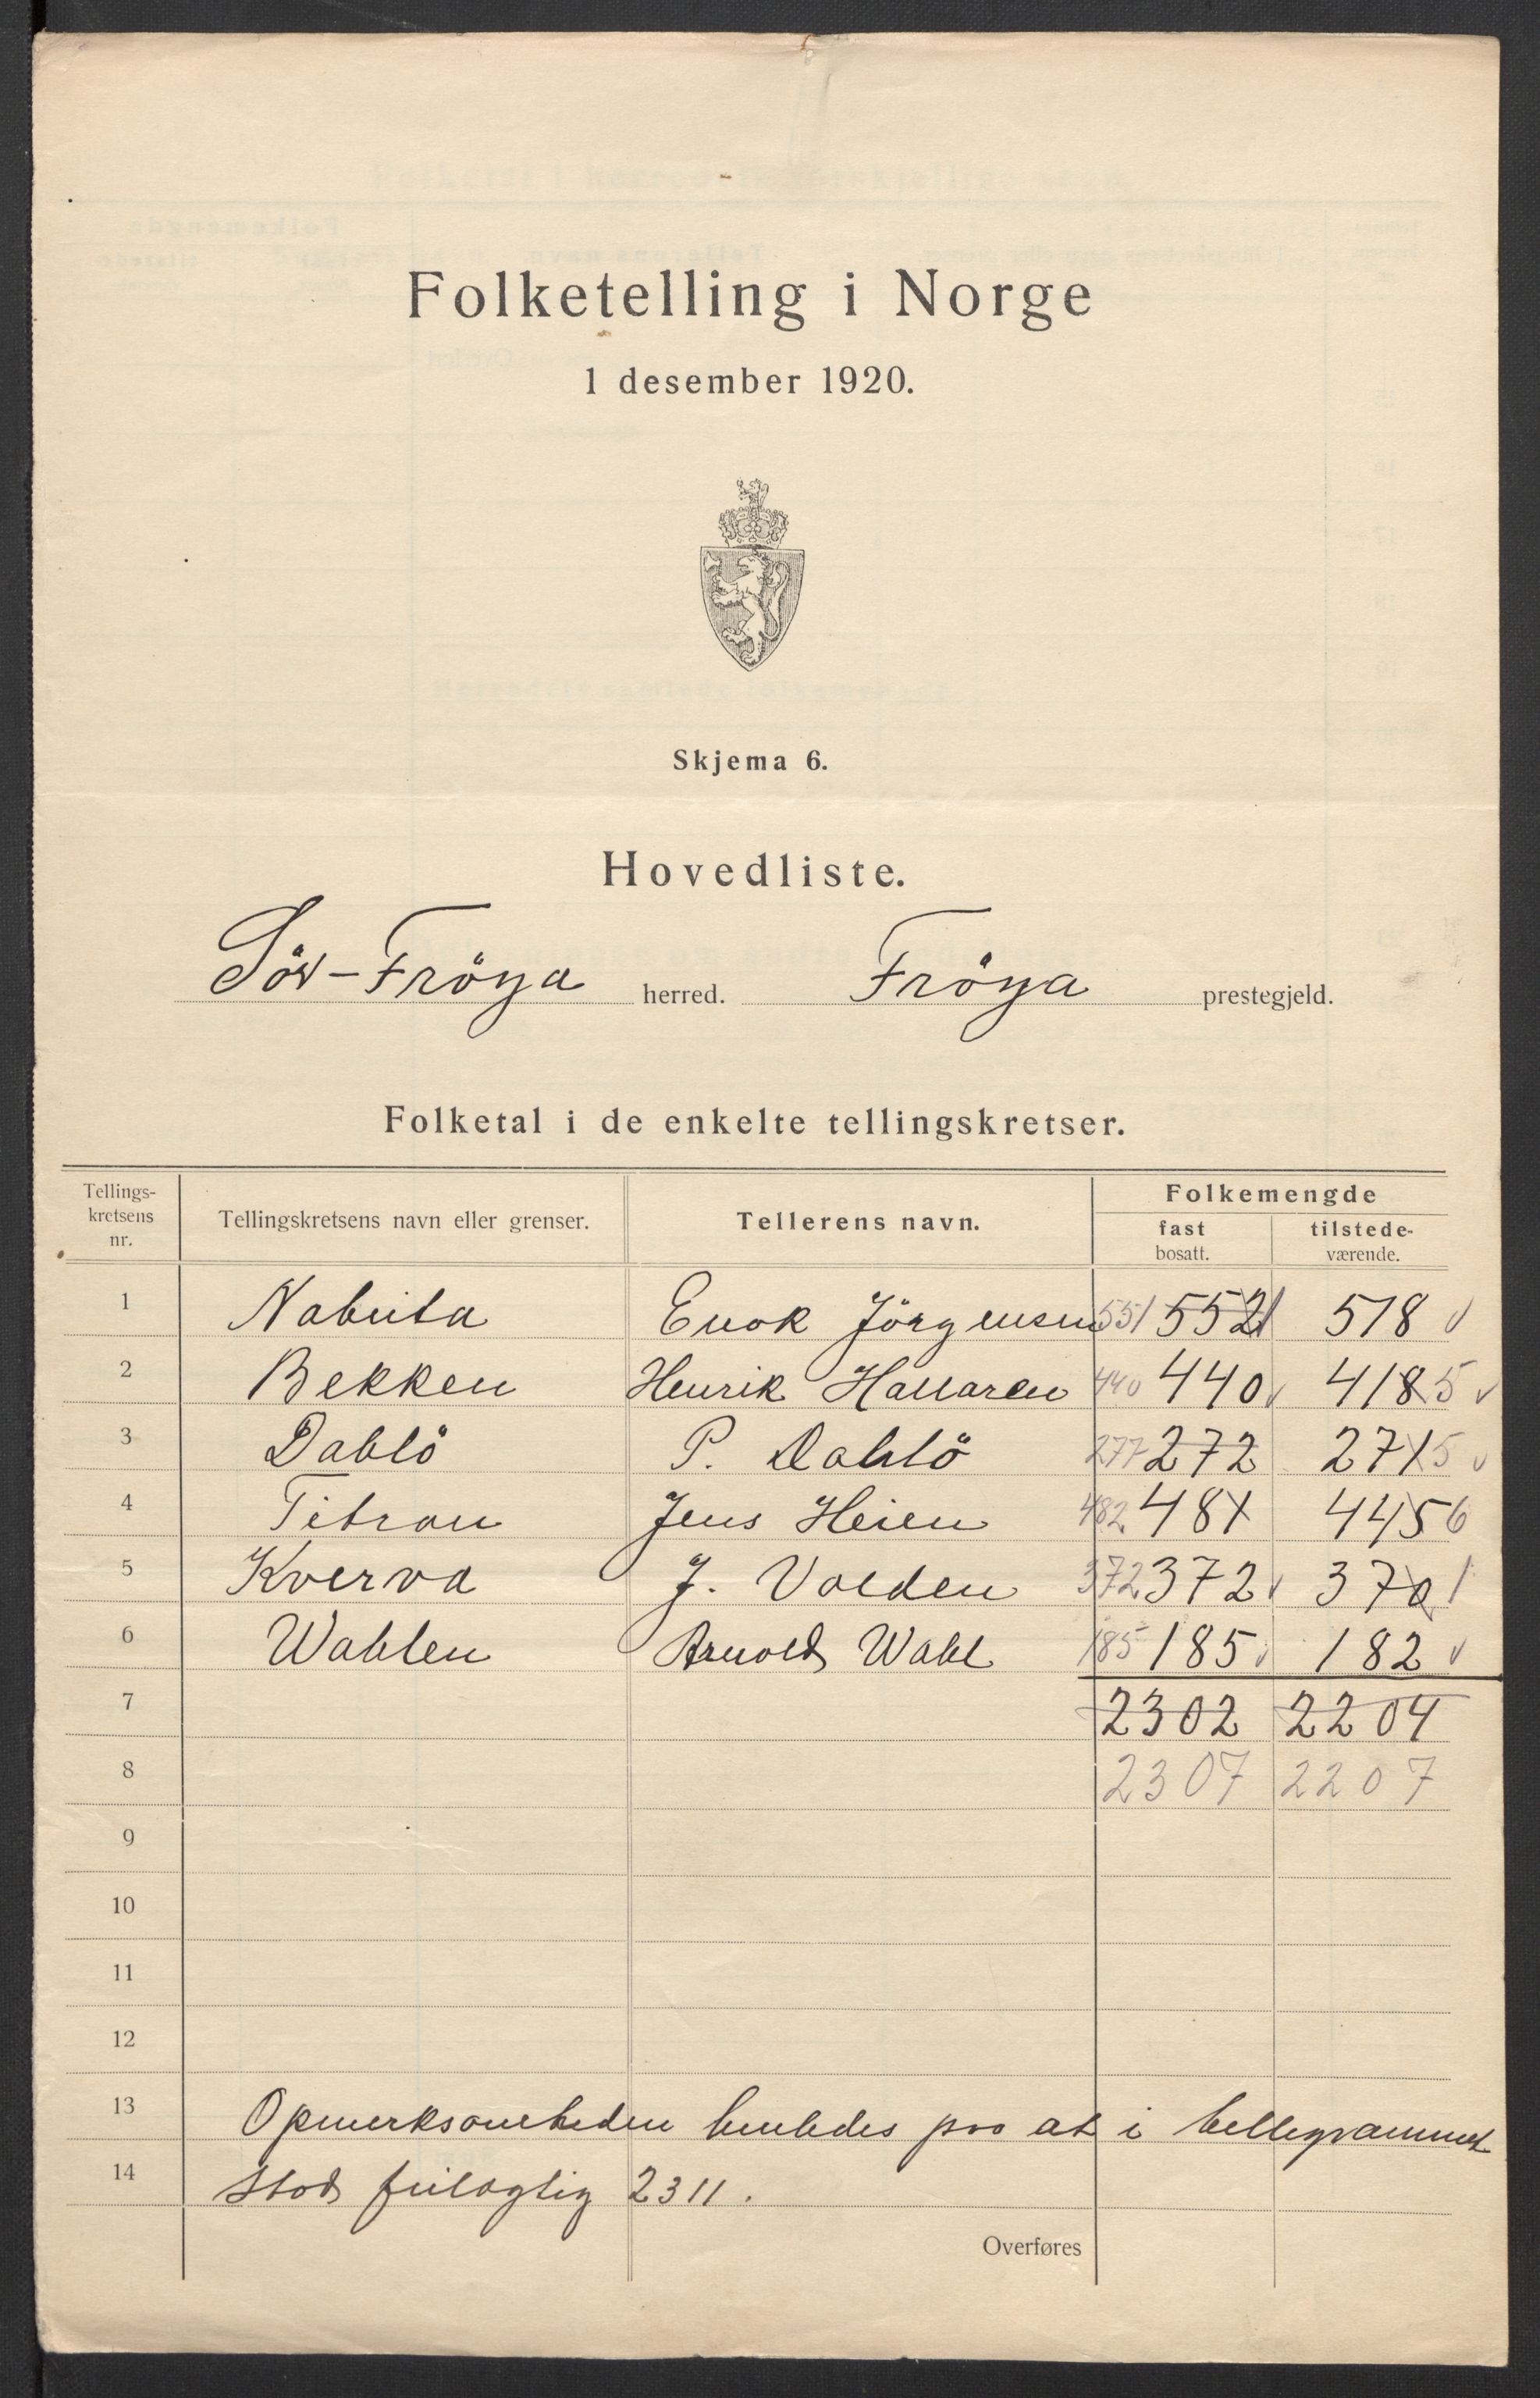 Folketelling i Norge
1 desember 1920.
Skjema 6.
Hovedliste.
Sör-Fröya herred. Fröya prestegjeld.
Folketal i de enkelte tellingskretser.
Tellings-
kretsens
nr.
Tellingskretsens navn eller grenser.
Tellerens navn.
Folkemengde
fast
bosatt.
tilstede-
værende.
1 Nabeita Enok Jörgensen 551 5521 518
2 Bekken Henrik Hallaren 440 440 4185
3 Dahlö P. Dahlö 277 272 2715
4 Titran Jens Heien 482 481 4456
5 Kverva J. Volden 372 372 3701
6 Wahlen Arnold Wahl 185 185 182
7 2302 2204
8 2307 2207
9
10
11
12
13 Opmerksomheden henledes paa at i tellegrammet
14 stod feilagtig 2311.
Overføres